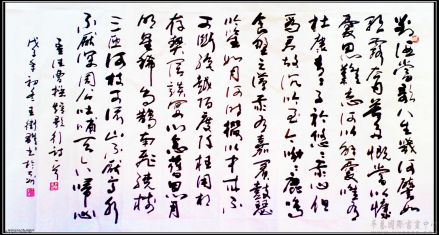 對酒當歌人生幾何譬如
朝露去日苦多慨當以慷
憂思難忘何以解憂唯有
杜康青青子衿悠悠我心但
爲君故沉吟至今呦呦鹿鳴
食野之苹我有嘉賓鼓瑟
吹笙如月何時掇中來不
可斷絕越陌度阡枉用相
存契闊談讌心念舊恩月
明星稀烏鵲南飛繞樹
三匝何枝可依山不厭高水
不厭深周公吐哺天下歸心
曹操短歌行詩
戊子年初冬王衛書於